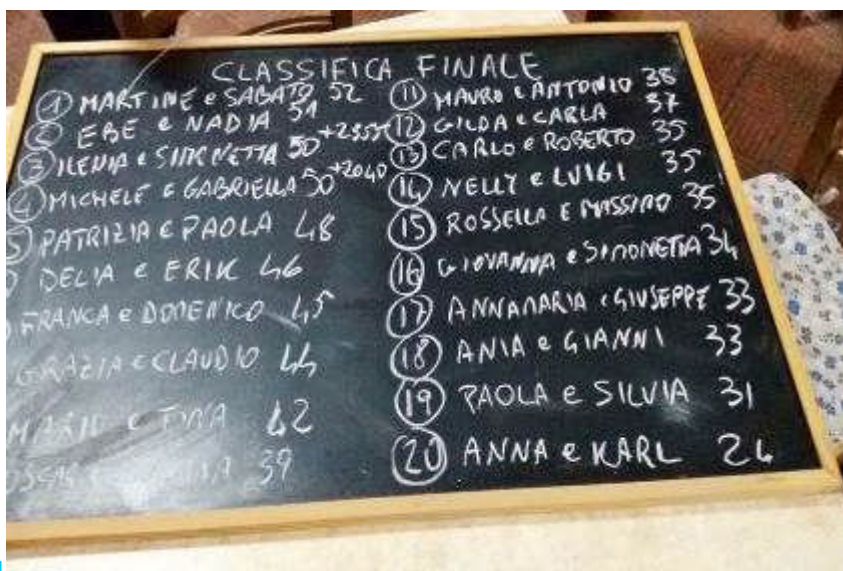 CLASSIFICA FINALE
1 MARTINE e SABATO 52
2 EBE e NADIA 51
3 ILENIA e SIMONETTA 50
4 MICHELE e GABRIELLA 50 +2040
5 PATRIZIA e PAOLA 48
DELIA e ERIK 46
FRANCA e DOMENICO 45
GRAZIA e CLAUDIO 44
MARIO e 42
39
11 MAURO e ANTONIO 38
12 GILDA e CARLA 37
13 CARLO e ROBERTO 35
14 NELLY e LUIGI 35
15 ROSSELLA E MASSIMO 35
16 GIOVANNA e SIMONETTA 34
17 ANNAMARIA e GIUSEPPE 33
18 ANIA e GIANNI 33
19 PAOLA e SILVIA 31
20 ANNA e KARL 24